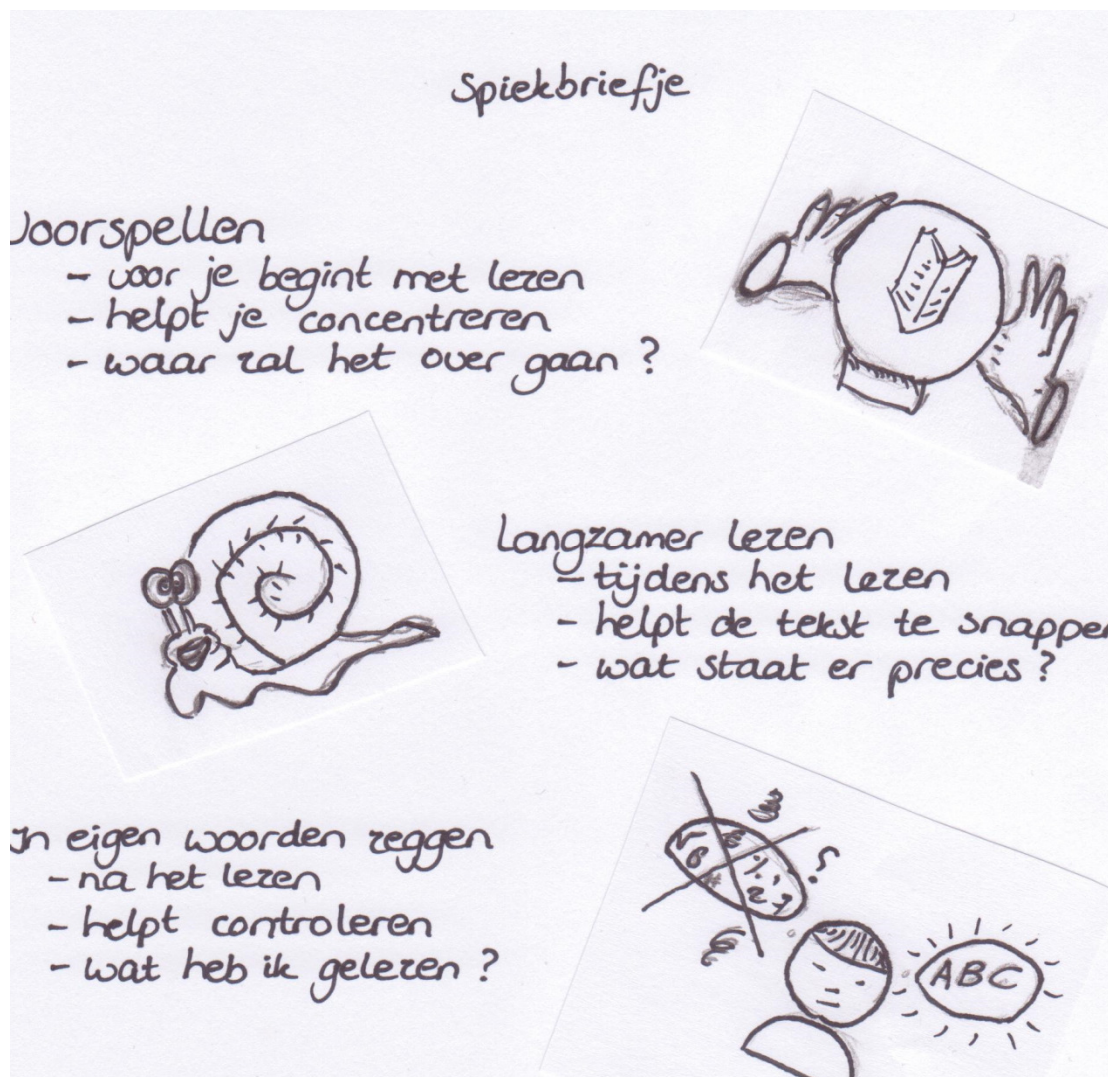 Spiekbriefje
Voorspellen
- voor je begint met lezen
- helpt je concentreren
- waar zal het over gaan ?
Langzamer lezen
- tijdens het lezen
- helpt de tekst te snappen
- wat staat er precies ?
In eigen woorden zeggen
- na het lezen
- helpt controleren
- wat heb ik gelezen ?
?
ABC